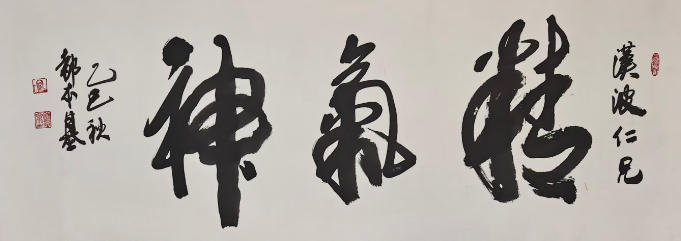 漢波仁兄
精氣神
乙巳秋
都本基